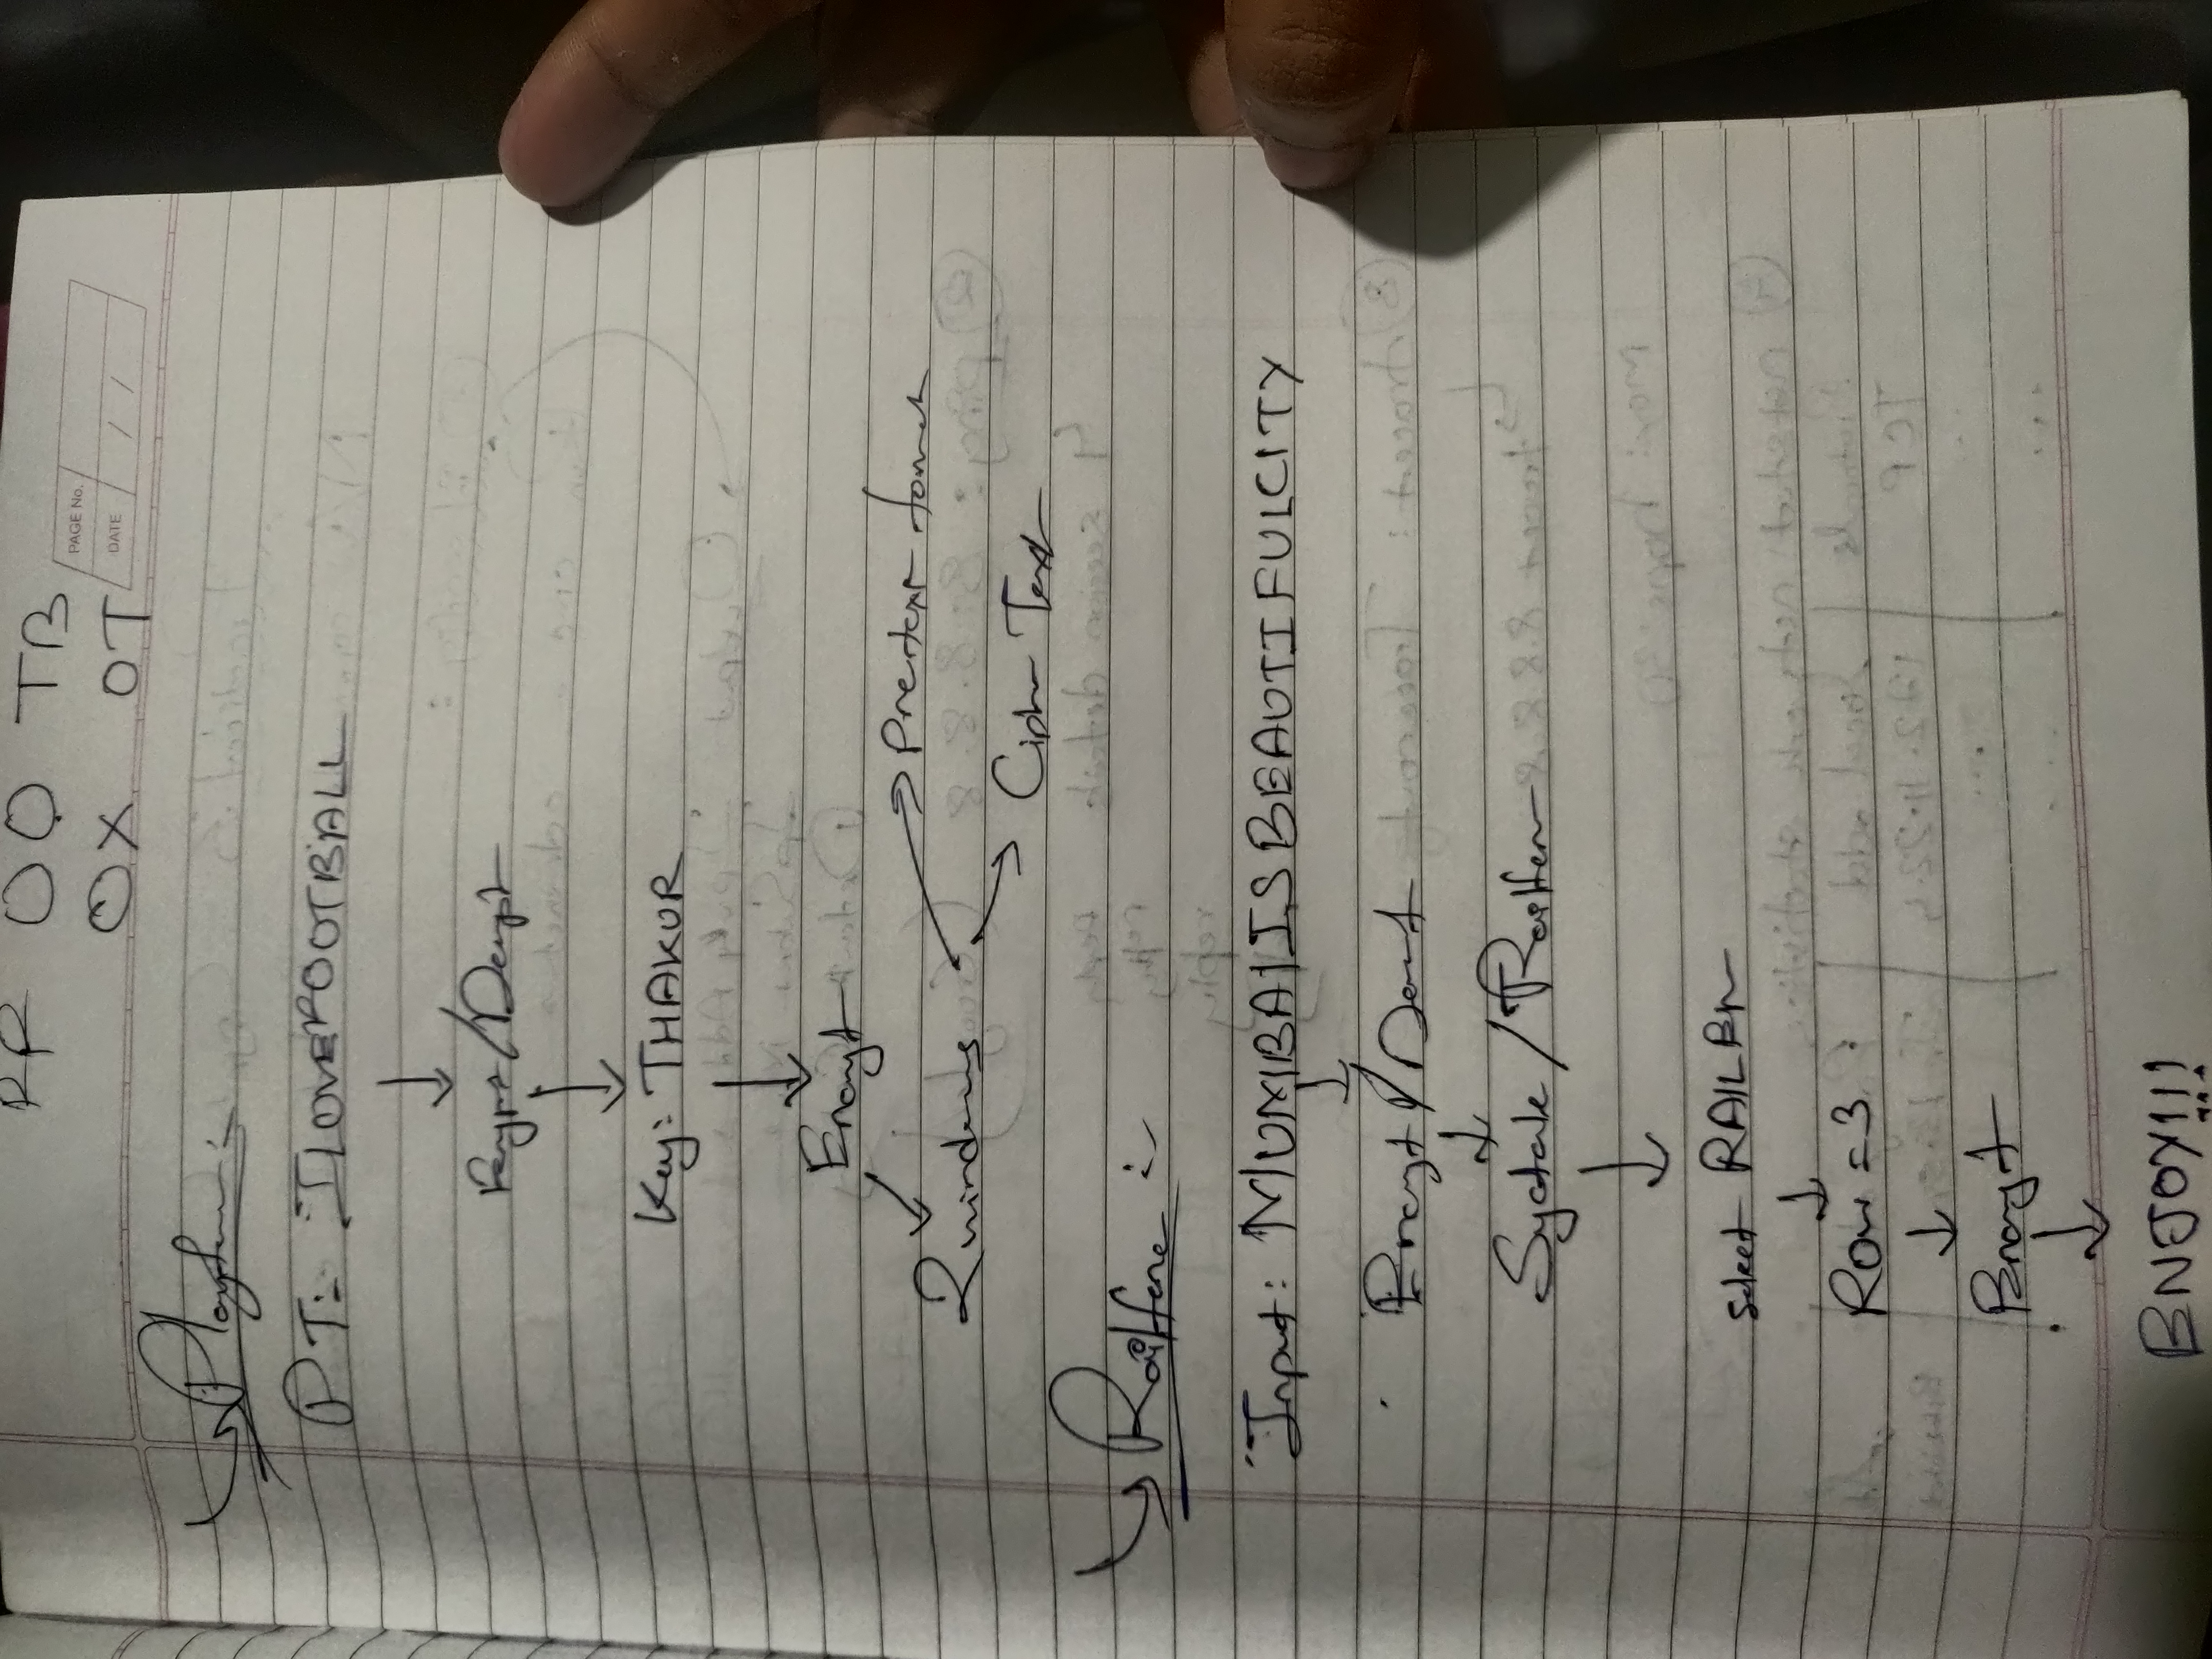 OO TB
PAGE No.
OX OT
DATE / /
Playfair :-
PT:- ILOVEFOOTBALL
Encrypt/Decrypt
Key: THAKUR
Encrypt
2 windows
Pretext format
Cipher Text
Railfence :-
Input: MUMBAIISBEAUTIFULCITY
Encrypt/Decrypt
/ Railfence
select RAILFen
Row = 3
Encrypt
ENJOY!!!